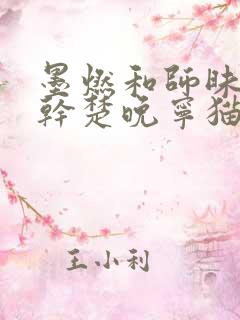 墨燃和師昧
幹楚晚寧猫
王小利